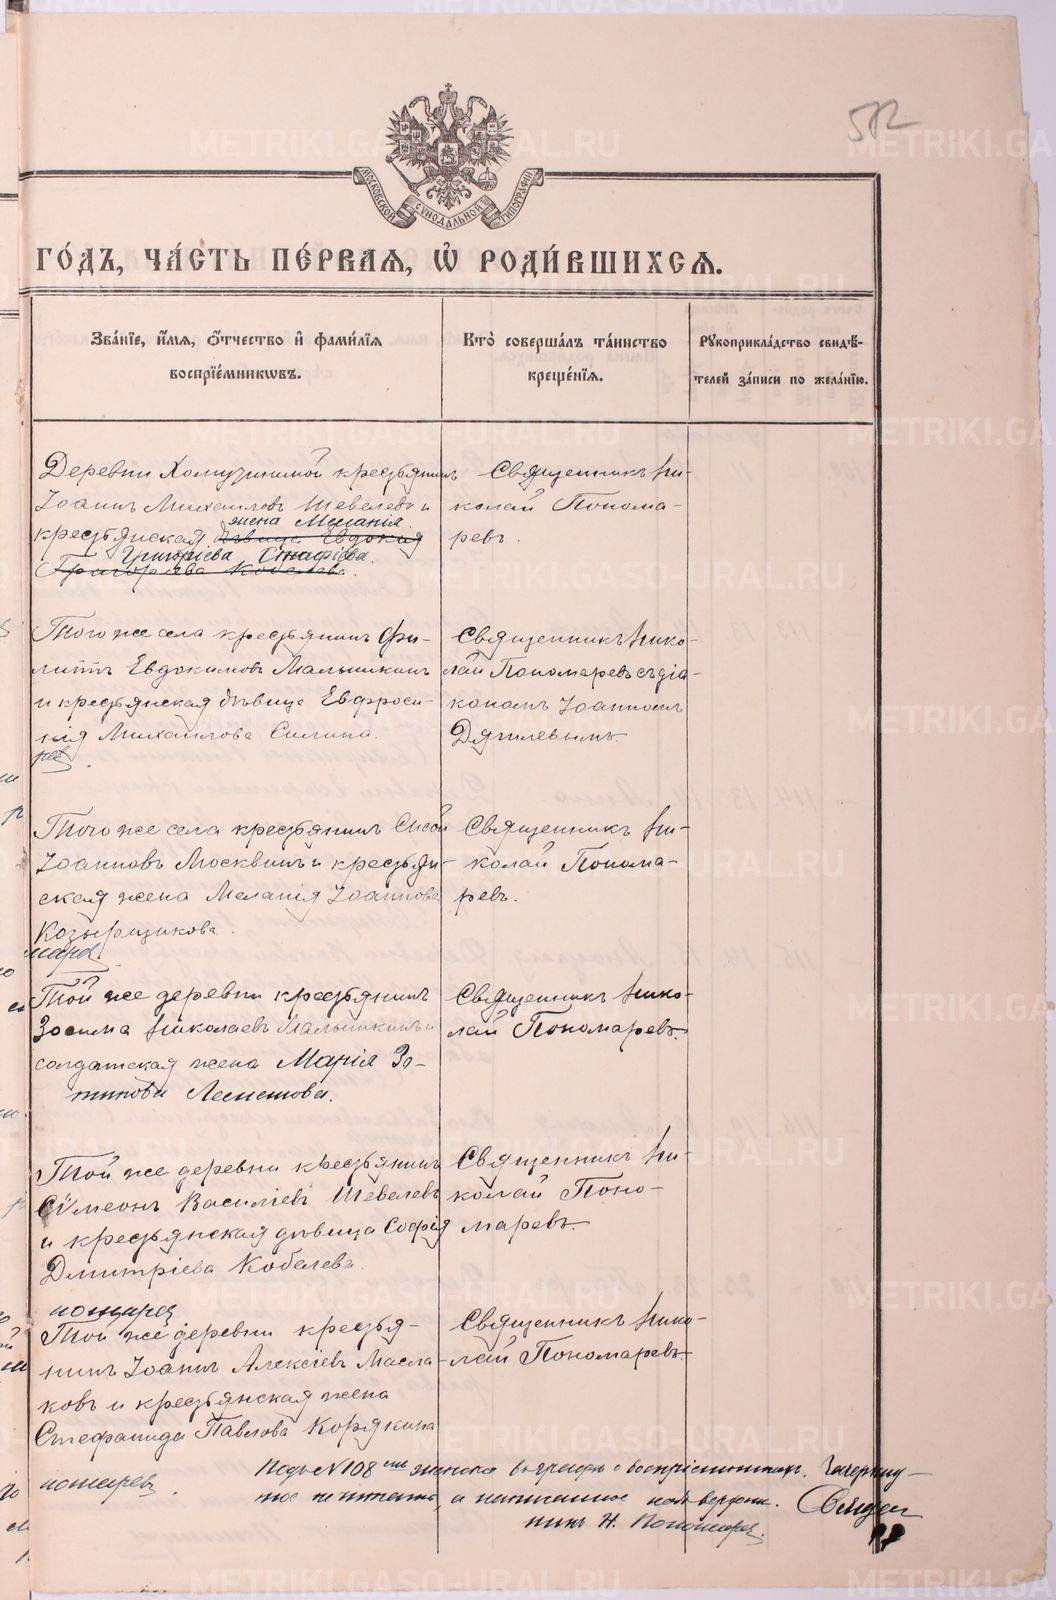 572
МОСКОВСКОЙ СУНОДАЛЬНОЙ ТИПОГРАФІИ
ГО́ДЪ, ЧА́СТЬ ПЕ́РВАЯ, Ѡ҆ РОДИ́ВШИХСЯ.
Зва́нїе, и҆́мя, ѻ҆́тчество и҆ фами́лїя
воспрїе́мникѡвъ.
Кто̀ соверша́лъ та́инство
креще́нїя.
Рꙋкоприкла́дство свидѣ́-
телей за́писи по жела́нїю.
Деревни крестьянинъ
Іоаннъ Михаиловъ Шевелевъ и
жена Меланія
крестьянская дѣвица Евдокія
Григоріева
Григорьева Кобелева.
Священникъ Ни-
колай Понома-
ревъ.
Того же села крестьянинъ Фи-
липпъ Евдокимовъ Малышкинъ
и крестьянская дѣвица Евфроси-
нія Михаилова Силина.
Священникъ Нико-
лай Пономаревъ съ діа-
кономъ Іоанномъ
Дягилевымъ.
Того же села крестьянинъ Сысой
Іоанновъ Москвинъ и крестьян-
ская жена Меланія Іоаннова
Козырщикова.
Священникъ Ни-
колай Понома-
ревъ.
Той же деревни крестьянинъ
Зосима Николаевъ Малышкинъ и
солдатская жена Марія Зо-
тикова Лемешова.
Священникъ Нико-
лай Пономаревъ.
Той же деревни крестьянинъ
Сѵмеонъ Василіевъ Шевелевъ
и крестьянская дѣвица Софія
Дмитріева Кобелева
Священникъ Ни-
колай Поно-
маревъ.
Той же деревни крестья-
нинъ Іоаннъ Алексіевъ Масла-
ковъ и крестьянская жена
Стефанида Павлова Корякина
Священникъ Нико-
лай Пономаревъ.
Подъ № 108 въ графѣ о воспріемникахъ зачеркну-
тое не читать, а написанное верхъ. Священ
никъ Н. Пономарев.
METRIKI.GASO-URAL.RU